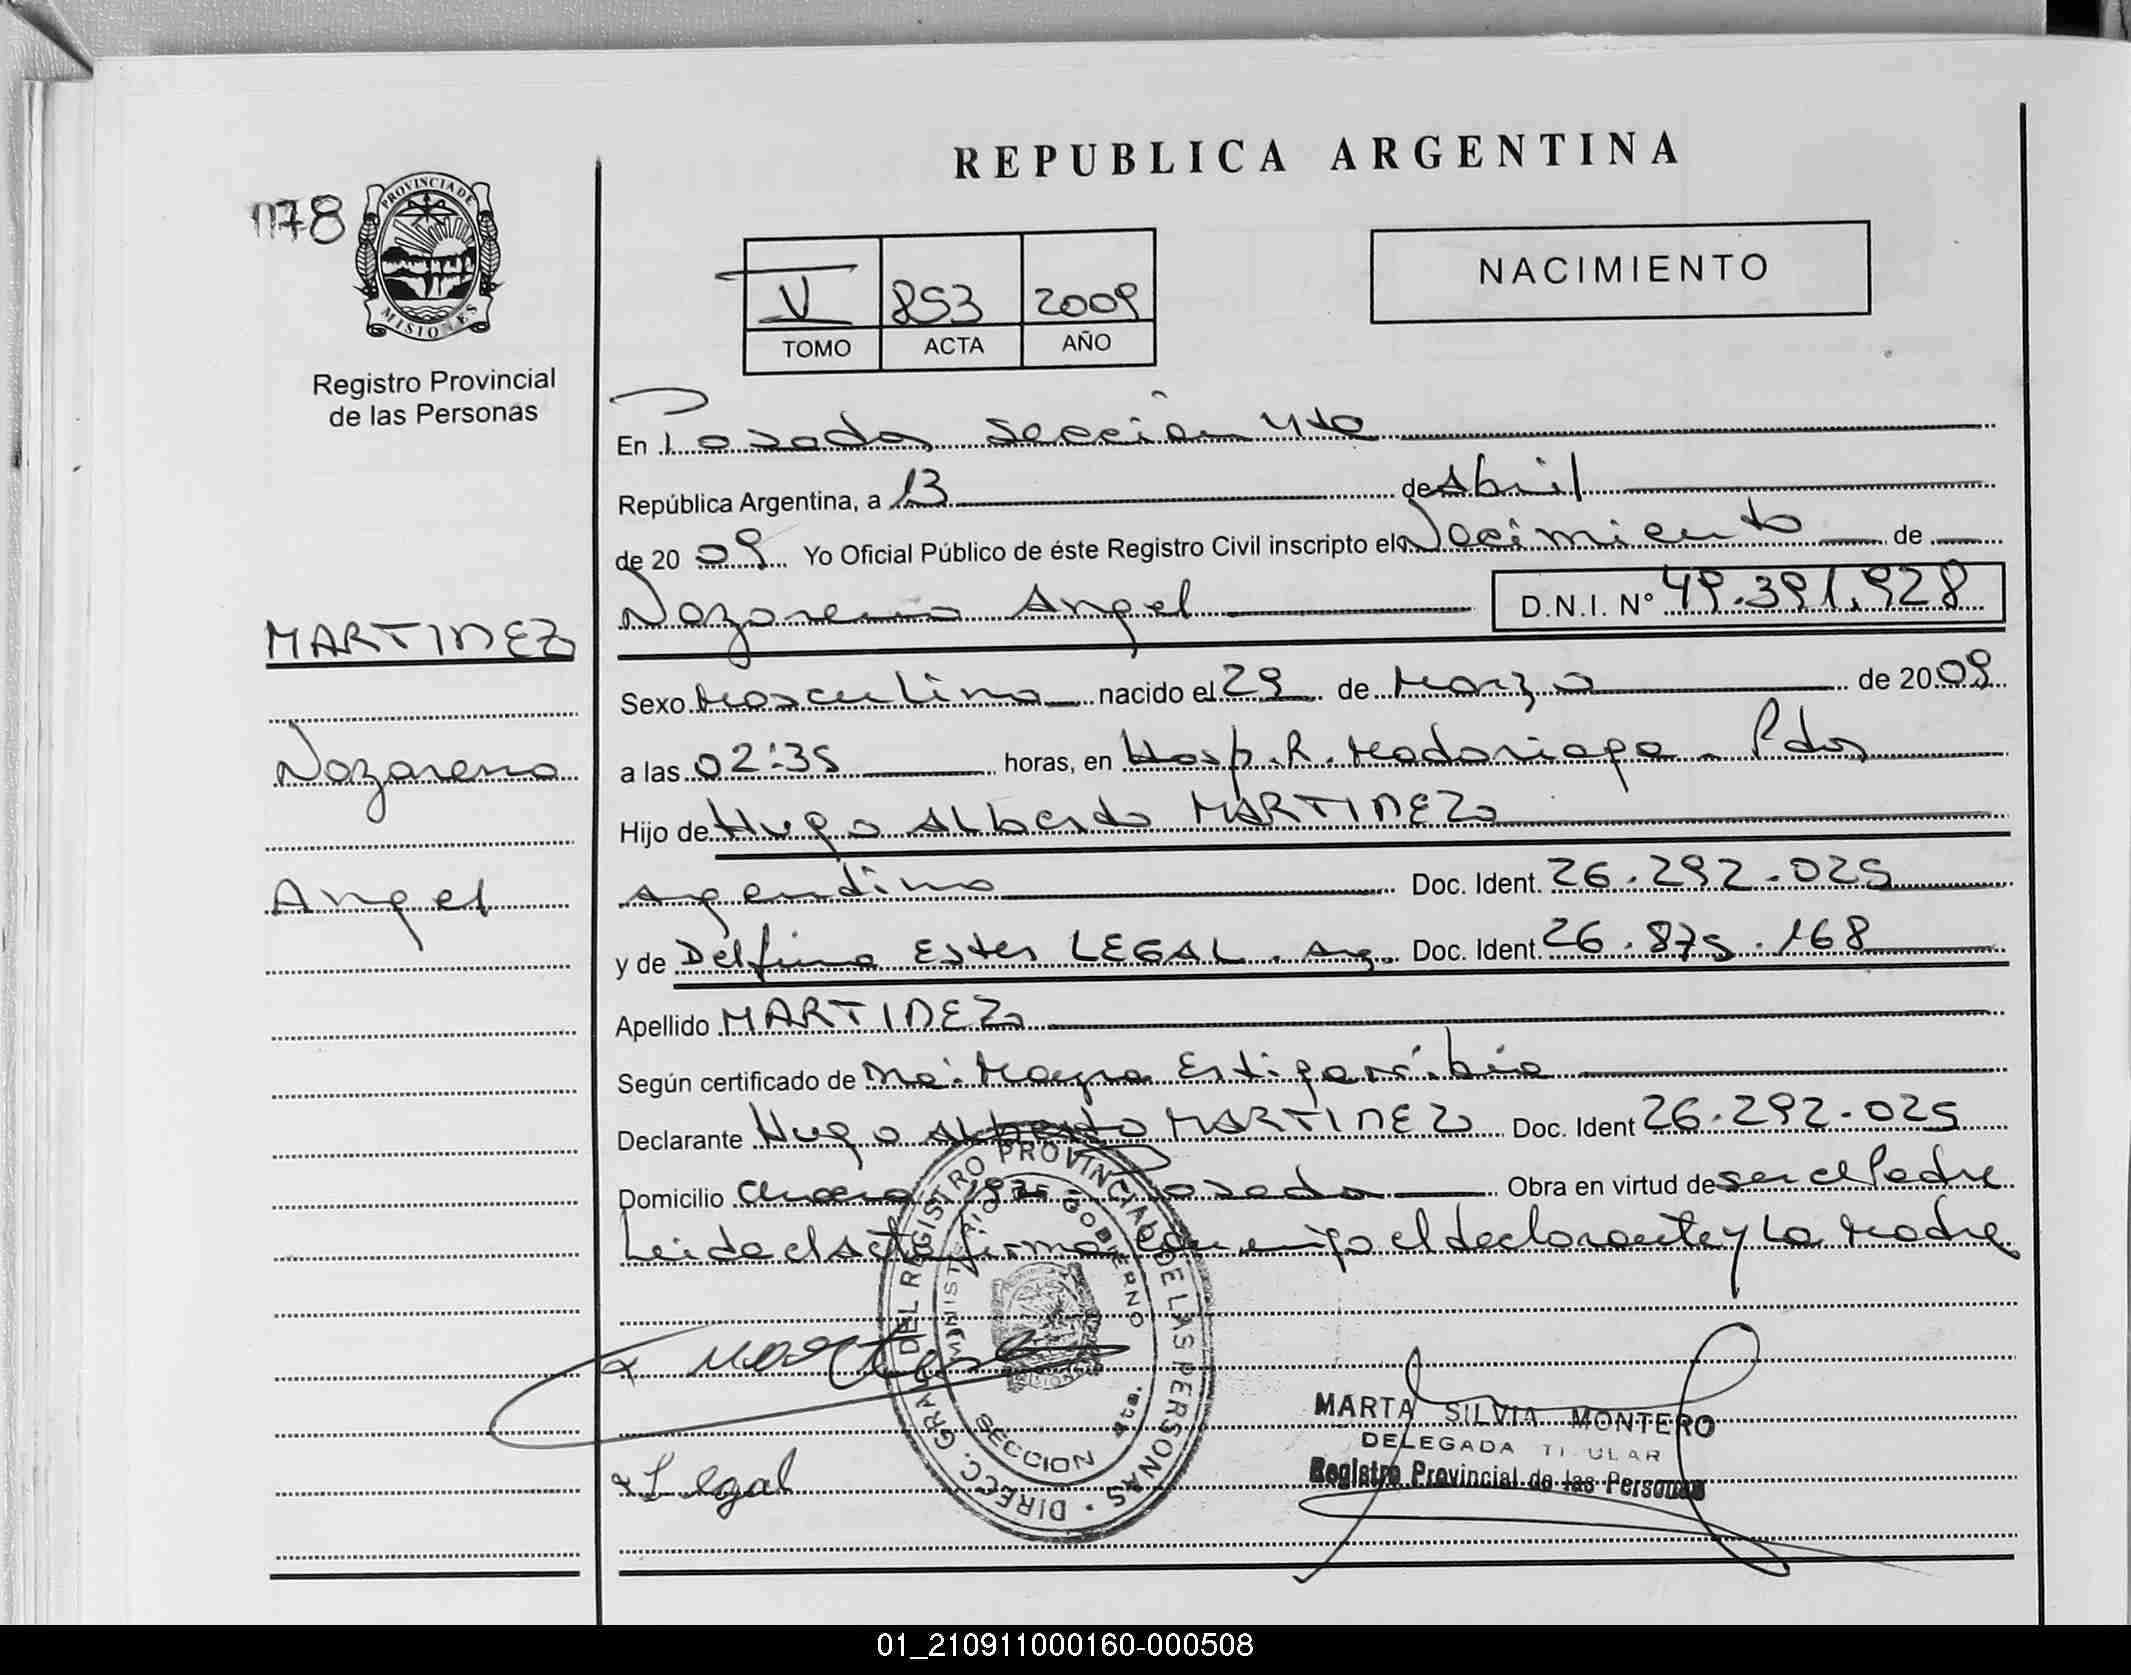 REPUBLICA ARGENTINA
1178
PROVINCIA DE
MISIONES
Registro Provincial
de las Personas
V 853 2009
TOMO ACTA AÑO
NACIMIENTO
En Posadas, Sección 4ta
República Argentina, a 13 de Abril
de 2009 Yo Oficial Público de éste Registro Civil inscripto el Nacimiento de
Nazareno Angel D.N.I. N° 49.391.928
MARTINEZ
Nazareno
Angel
Sexo Masculino nacido el 29 de Marzo de 2009
a las 02:35 horas, en Hosp. R. Madariaga - Pdas
Hijo de Hugo Alberto MARTINEZ
Argentino Doc. Ident. 26.292.025
y de Delfina Ester LEGAL. Arg. Doc. Ident. 26.875.168
Apellido MARTINEZ
Según certificado de Mayra Estigarribia
Declarante Hugo Alberto MARTINEZ Doc. Ident 26.292.025
Domicilio Posadas Obra en virtud de ser el Padre
Leida el Acta firman conmigo el declarante y La Madre
DIRECC. GRAL. DEL REGISTRO PROVINCIAL DE LAS PERSONAS
MINISTERIO GOBIERNO
SECCION 4ta.
Legal
MARTA SILVIA MONTERO
DELEGADA TITULAR
Registro Provincial de las Personas
01_210911000160-000508